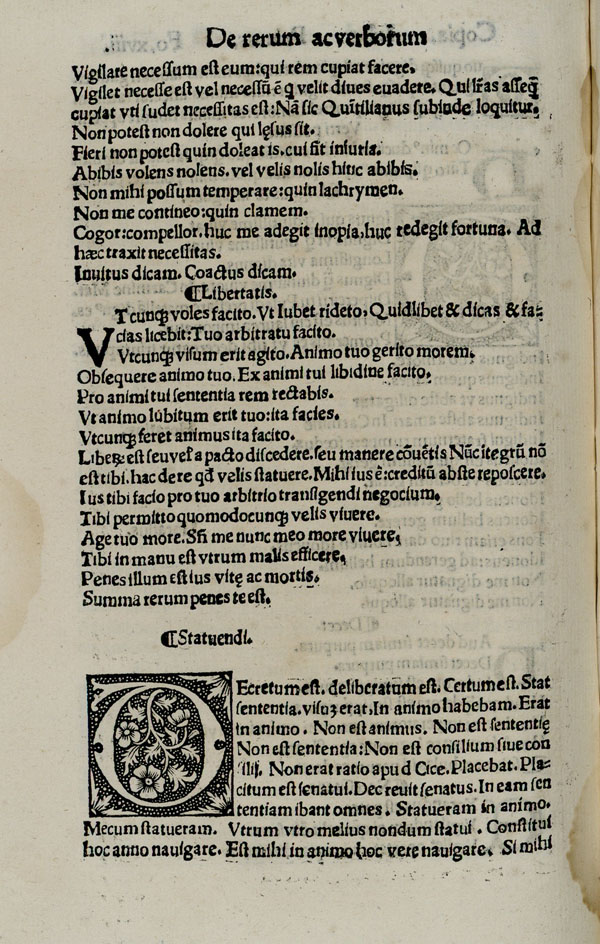 De rerum ac verborum
Vigilare necessum est eum: qui rem cupiat facere.
Vigilet necesse est vel necessũ ẽ q velit diues euadere. Qui lr̃as asseq̃
cupiat vti sudet necessitas est: Nã sic Quĩtilianus subinde loquitur.
Non potest non dolere qui lęsus sit.
Fieri non potest quin doleat is. cui fit iniuria.
Abibis volens nolens. vel velis nolis hinc abibis.
Non mihi possum temperare: quin lachrymen.
Non me contineo: quin clamem.
Cogor: compellor. huc me adegit inopia, huc redegit fortuna. Ad
hæc traxit necessitas.
Inuitus dicam. Coactus dicam.
¶Libertatis.
VTcunqꝫ voles facito. Vt Iubet rideto, Quidlibet & dicas & fa⸗
cias licebit: Tuo arbitratu facito.
Vtcunqꝫ visum erit agito. Animo tuo gerito morem.
Obsequere animo tuo. Ex animi tui libidine facito.
Pro animi tui sententia rem rectabis.
Vt animo lubitum erit tuo: ita facies.
Vtcunqꝫ feret animus ita facito.
est seu vel a pacto discedere. seu manere cõuẽtis Nũc itegrũ nõ
est tibi. hac de re qd̃ velis statuere. Mihi ius ẽ: creditũ abs te reposcere.
Ius tibi facio pro tuo arbitrio transigendi negocium.
Tibi permitto quomodocunqꝫ velis viuere.
Age tuo more. Sñ me nunc meo more viuere.
Tibi in manu est vtrum malis efficere.
Penes illum est ius vitę ac mortis.
Summa rerum penes te est.
¶Statuendi.
DEcretum est. deliberatum est. Certum est. Stat
sententia. visuꝫ erat. In animo habebam. Erat
in animo. Non est animus. Non est sententię
Non est sententia: Non est consilium siue con
silij. Non erat ratio apud Cice. Placebat. Pla⸗
citum est senatui. Decreuit senatus. In eam sen
tentiam ibant omnes. Statueram in animo.
Mecum statueram. Vtrum vtro melius nondum statui. Constitui
hoc anno nauigare. Est mihi in animo hoc vere nauigare. Si mihi